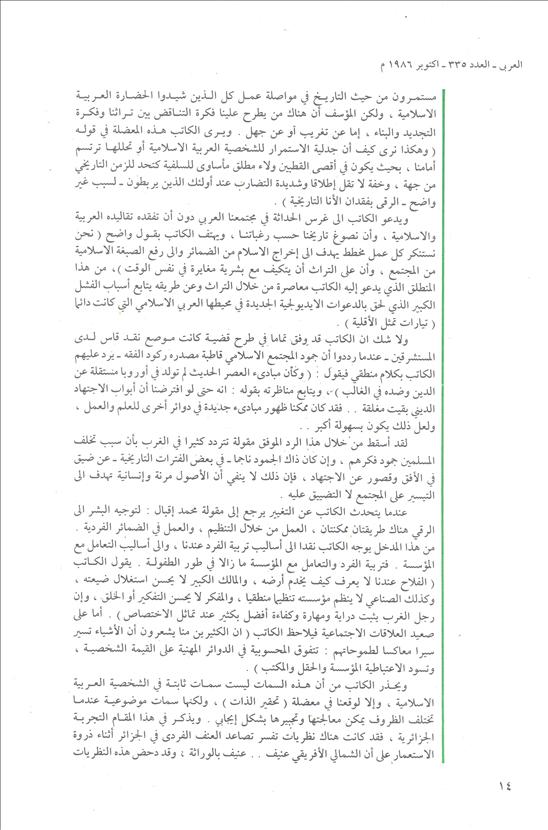 العربي - العدد ٣٣٥ - اكتوبر ١٩٨٦ م
مستمرون من حيث التاريخ في مواصلة عمل كل الذين شيدوا الحضارة العربية
الاسلامية ، ولكن المؤسف أن هناك من يطرح علينا فكرة التناقض بين تراثنا وفكرة
التجديد والبناء ، إما عن تغريب أو عن جهل . ويرى الكاتب هذه المعضلة في قوله
( وهكذا نرى كيف أن جدلية الاستمرار للشخصية العربية الاسلامية أو تحللها ترتسم
أمامنا ، بحيث يكون في أقصى القطبين ولاء مطلق مأساوى للسلفية كتحد للزمن التاريخي
من جهة ، وخفة لا تقل إطلاقا وشديدة التضارب عند أولئك الذين يربطون - لسبب غير
واضح - الرقى بفقدان الأنا التاريخية ) .
ويدعو الكاتب الى غرس الحداثة في مجتمعنا العربي دون أن تفقده تقاليده العربية
والاسلامية ، وأن نصوغ تاريخنا حسب رغباتنا ، ويهتف الكاتب بقول واضح ( نحن
نستنكر كل عمل مخطط يهدف الى إخراج الاسلام من الضمائر والى رفع الصبغة الاسلامية
من المجتمع ، وأن على التراث أن يتكيف مع بشرية مغايرة في نفس الوقت ) ، من هذا
المنطلق الذي يدعو إليه الكاتب معاصرة من خلال التراث وعن طريقه يتابع أسباب الفشل
الكبير الذي لحق بالدعوات الايديولوجية الجديدة في محيطها العربي الاسلامي التي كانت دائما
( تيارات تمثل الأقلية ) .
ولا شك ان الكاتب قد وفق تماما في طرح قضية كانت موضع نقد قاس لدى
المستشرقين - عندما رددوا أن جمود المجتمع الاسلامي قاطبة مصدره ركود الفقه - يرد عليهم
الكاتب بكلام منطقي فيقول : ( وكأن مبادىء العصر الحديث لم تولد في أوروبا مستقلة عن
الدين وضده في الغالب ) ، ويتابع مناظرته بقوله : انه حتى لو افترضنا أن أبواب الاجتهاد
الديني بقيت مغلقة . . فقد كان ممكنا ظهور مبادىء جديدة في دوائر أخرى للعلم والعمل ،
ولعل ذلك يكون بسهولة أكبر . .
لقد أسقط من خلال هذا الرد الموفق مقولة تتردد كثيرا في الغرب بأن سبب تخلف
المسلمين جمود فكرهم ، وإن كان ذاك الجمود ناجما - في بعض الفترات التاريخية - عن ضيق
في الأفق وقصور عن الاجتهاد ، فإن ذلك لا ينفي أن الأصول مرنة وإنسانية تهدف الى
التيسير على المجتمع لا التضييق عليه .
عندما يتحدث الكاتب عن التغيير يرجع إلى مقولة محمد إقبال : لتوجيه البشر الى
الرقي هناك طريقتان ممكنتان ، العمل من خلال التنظيم ، والعمل في الضمائر الفردية .
من هذا المدخل يوجه الكاتب نقدا الى أساليب تربية الفرد عندنا ، والى أساليب التعامل مع
المؤسسة . فتربية الفرد والتعامل مع المؤسسة ما زالا في طور الطفولة . يقول الكاتب
( الفلاح عندنا لا يعرف كيف يخدم أرضه ، والمالك الكبير لا يحسن استغلال ضيعته ،
وكذلك الصناعي لا ينظم مؤسسته تنظيما منطقيا ، والمفكر لا يحسن التفكير أو الخلق ، وإن
رجل الغرب يثبت دراية ومهارة وكفاءة أفضل بكثير عند تماثل الاختصاص ) . أما على
صعيد العلاقات الاجتماعية فيلاحظ الكاتب ( ان الكثيرين منا يشعرون أن الأشياء تسير
سيرا معاكسا لطموحاتهم : تتفوق المحسوبية في الدوائر المهنية على القيمة الشخصية ،
وتسود الاعتباطية المؤسسة والحقل والمكتب ) .
ويحذر الكاتب من أن هذه السمات ليست سمات ثابتة في الشخصية العربية
الاسلامية ، وإلا لوقعنا في معضلة ( تحقير الذات ) ، ولكنها سمات موضوعية عندما
تختلف الظروف يمكن معالجتها وتجييرها بشكل إيجابي . ويذكر في هذا المقام التجربة
الجزائرية ، فقد كانت هناك نظريات تفسر تصاعد العنف الفردى في الجزائر أثناء ذروة
الاستعمار على أن الشمالي الأفريقي عنيف . . عنيف بالوراثة ، وقد دحض هذه النظريات
١٤